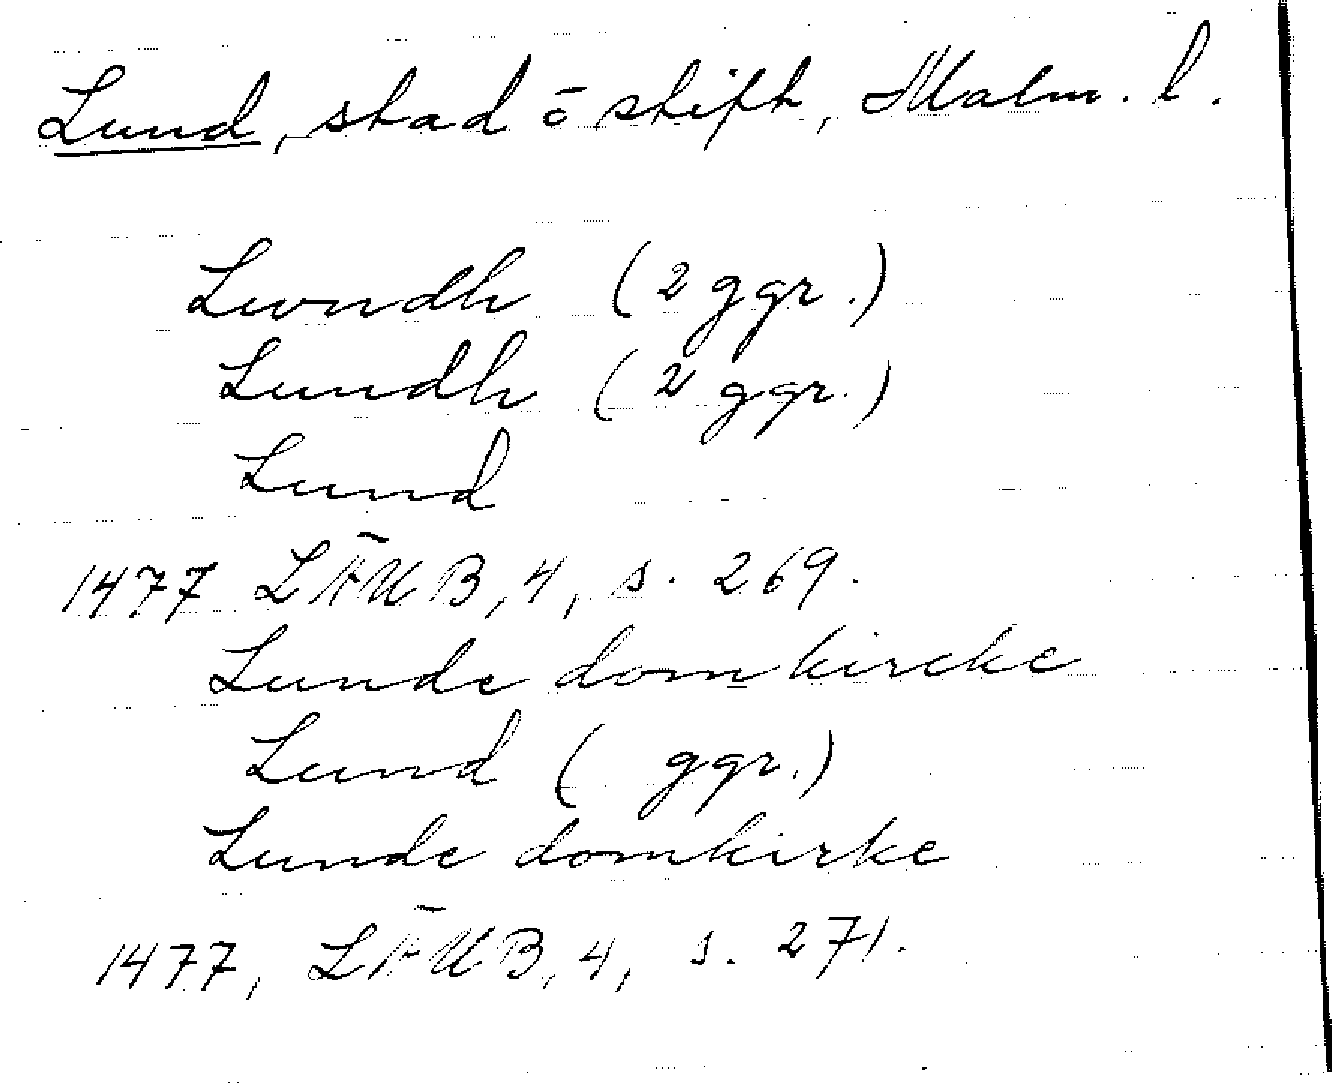 Lund, stad ō stift, Malm. l.
Lwndh (2 ggr.)
Lundh (2 ggr.)
Lund
1477 LÄUB, 4, s. 269.
Lunde domkircke
Lund ( ggr.)
Lunde domkirke
1477, LÄUB, 4, s. 271.